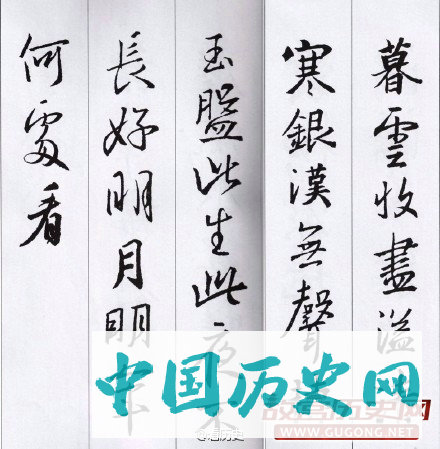 暮雲收盡溢
寒銀漢無聲
玉盤此生此夜不
長好明月明年
何處看
中国历史网
WWW.GUGONG.NET